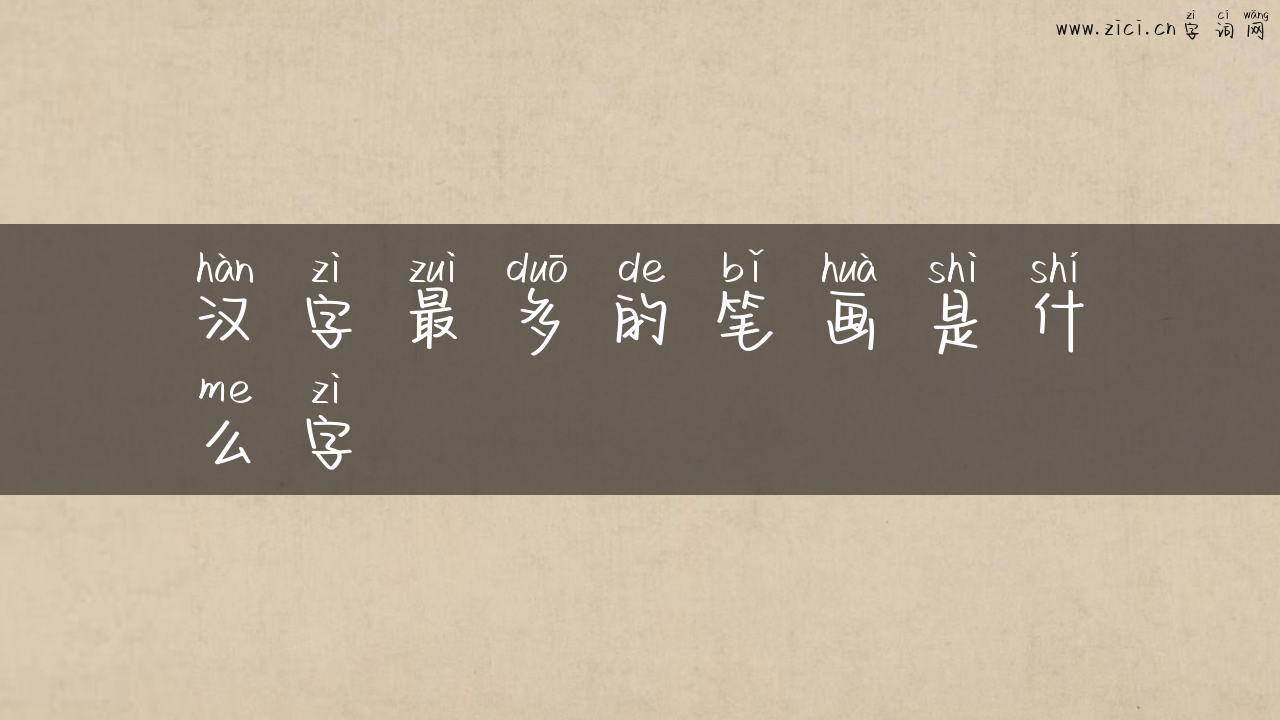 zì cí wǎng
www.zici.cn 字 词 网
hàn zì zuì duō de bǐ huà shì shí
汉 字 最 多 的 笔 画 是 什
me zì
么 字